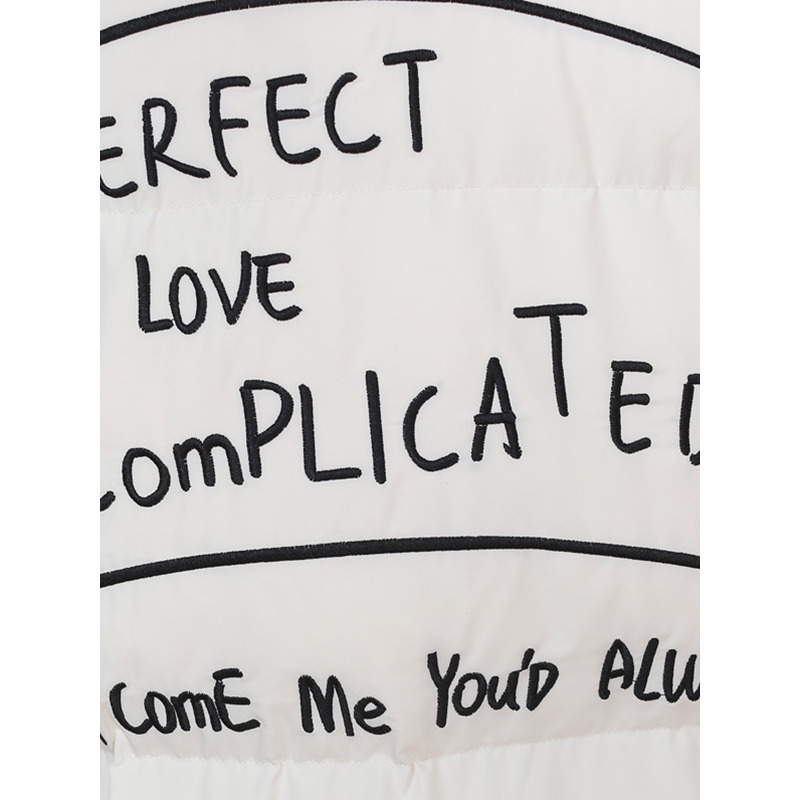 ERFECT
LOVE
ComPLICATED
ComE Me You'D ALW